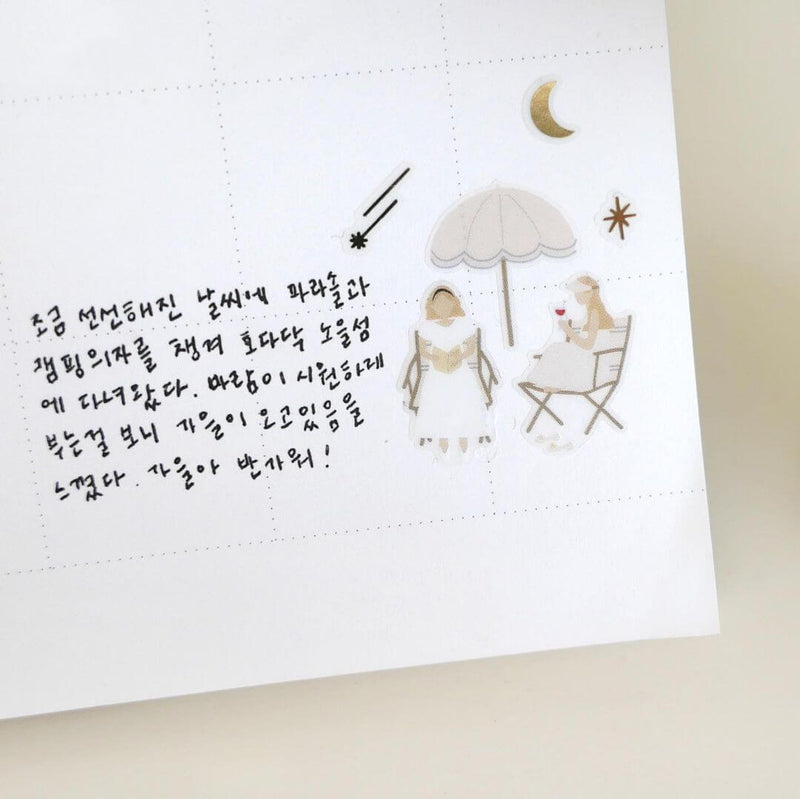 조금 선선해진 날씨에 파라솔과
캠핑의자를 챙겨 호다닥 노을섬
에 다녀왔다. 바람이 시원하게
부는걸 보니 가을이 오고있음을
느꼈다. 가을아 반가워!